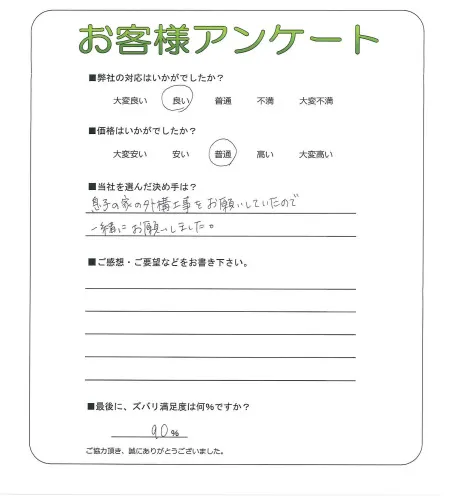 お客様アンケート
■弊社の対応はいかがでしたか？
大変良い 良い 普通 不満 大変不満
■価格はいかがでしたか？
大変安い 安い 普通 高い 大変高い
■当社を選んだ決め手は？
息子の家の外構工事をお願いしていたので
一緒にお願いしました。
■ご感想・ご要望などをお書き下さい。
■最後に、ズバリ満足度は何%ですか？
90%
ご協力頂き、誠にありがとうございました。